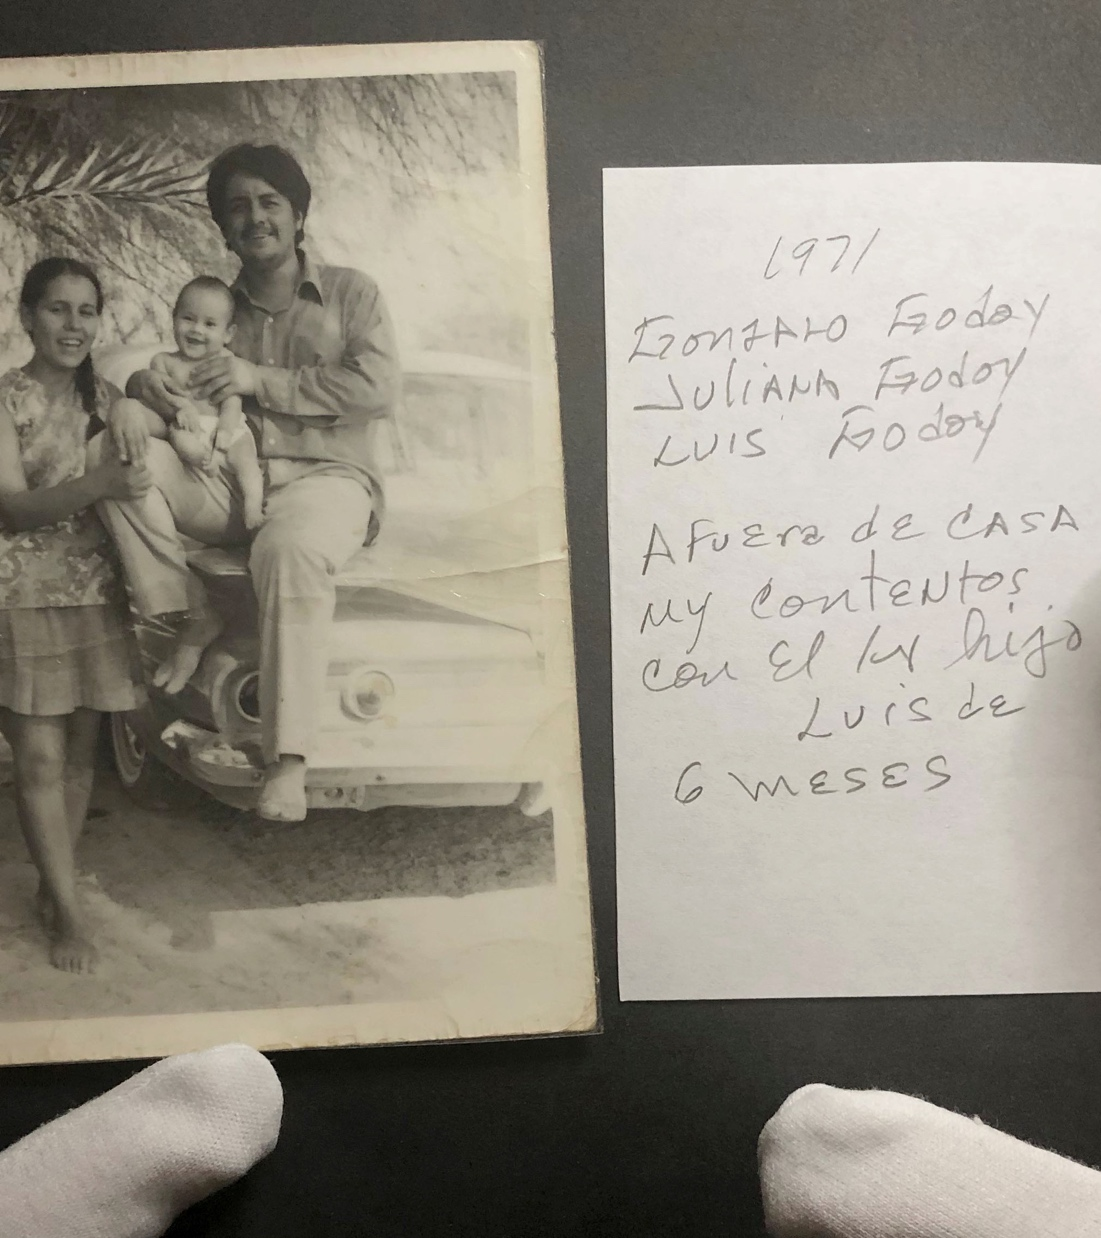 1971
Gonzalo Godoy
Juliana Godoy
Luis Godoy
Afuera de casa
my contentos
con El 1er hijo
Luis de
6 meses